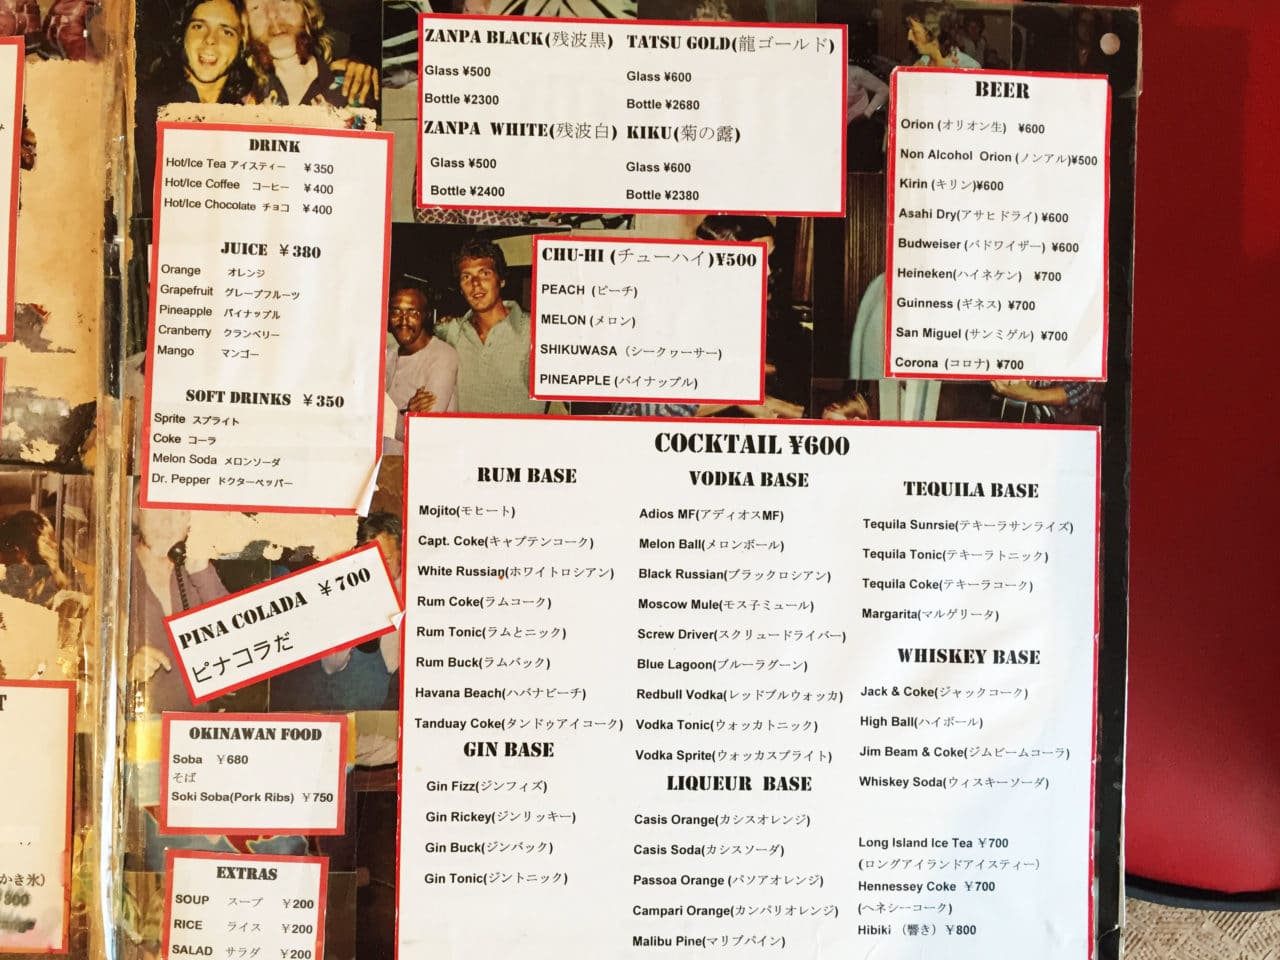 ZANPA BLACK(残波黒) TATSU GOLD(龍ゴールド)
Glass ¥500 Glass ¥600
Bottle ¥2300 Bottle ¥2680
ZANPA WHITE(残波白) KIKU(菊の露)
Glass ¥500 Glass ¥600
Bottle ¥2400 Bottle ¥2380
BEER
Orion (オリオン生) ¥600
Non Alcohol Orion (ノンアル)¥500
Kirin (キリン)¥600
Asahi Dry(アサヒドライ) ¥600
Budweiser (バドワイザー) ¥600
Heineken(ハイネケン) ¥700
Guinness (ギネス) ¥700
San Miguel (サンミゲル) ¥700
Corona (コロナ) ¥700
DRINK
Hot/Ice Tea アイスティー ¥350
Hot/Ice Coffee コーヒー ¥400
Hot/Ice Chocolate チョコ ¥400
JUICE ¥380
Orange オレンジ
Grapefruit グレープフルーツ
Pineapple パイナップル
Cranberry クランベリー
Mango マンゴー
SOFT DRINKS ¥350
Sprite スプライト
Coke コーラ
Melon Soda メロンソーダ
Dr. Pepper ドクターペッパー
CHU-HI (チューハイ)¥500
PEACH (ピーチ)
MELON (メロン)
SHIKUWASA (シークヮーサー)
PINEAPPLE (パイナップル)
PINA COLADA ¥700
ピナコラだ
OKINAWAN FOOD
Soba ¥680
そば
Soki Soba(Pork Ribs) ¥750
EXTRAS
SOUP スープ ¥200
RICE ライス ¥200
SALAD サラダ ¥200
COCKTAIL ¥600
RUM BASE
Mojito(モヒート)
Capt. Coke(キャプテンコーク)
White Russian(ホワイトロシアン)
Rum Coke(ラムコーク)
Rum Tonic(ラムとニック)
Rum Buck(ラムバック)
Havana Beach(ハバナビーチ)
Tanduay Coke(タンドゥアイコーク)
GIN BASE
Gin Fizz(ジンフィズ)
Gin Rickey(ジンリッキー)
Gin Buck(ジンバック)
Gin Tonic(ジントニック)
VODKA BASE
Adios MF(アディオスMF)
Melon Ball(メロンボール)
Black Russian(ブラックロシアン)
Moscow Mule(モス子ミュール)
Screw Driver(スクリュードライバー)
Blue Lagoon(ブルーラグーン)
Redbull Vodka(レッドブルウォッカ)
Vodka Tonic(ウォッカトニック)
Vodka Sprite(ウォッカスプライト)
LIQUEUR BASE
Casis Orange(カシスオレンジ)
Casis Soda(カシスソーダ)
Passoa Orange (パソアオレンジ)
Campari Orange(カンパリオレンジ)
Malibu Pine(マリブパイン)
TEQUILA BASE
Tequila Sunrsie(テキーラサンライズ)
Tequila Tonic(テキーラトニック)
Tequila Coke(テキーラコーク)
Margarita(マルゲリータ)
WHISKEY BASE
Jack & Coke(ジャックコーク)
High Ball(ハイボール)
Jim Beam & Coke(ジムビームコーラ)
Whiskey Soda(ウィスキーソーダ)
Long Island Ice Tea ¥700
(ロングアイランドアイスティー)
Hennessey Coke ¥700
(ヘネシーコーク)
Hibiki (響き) ¥800